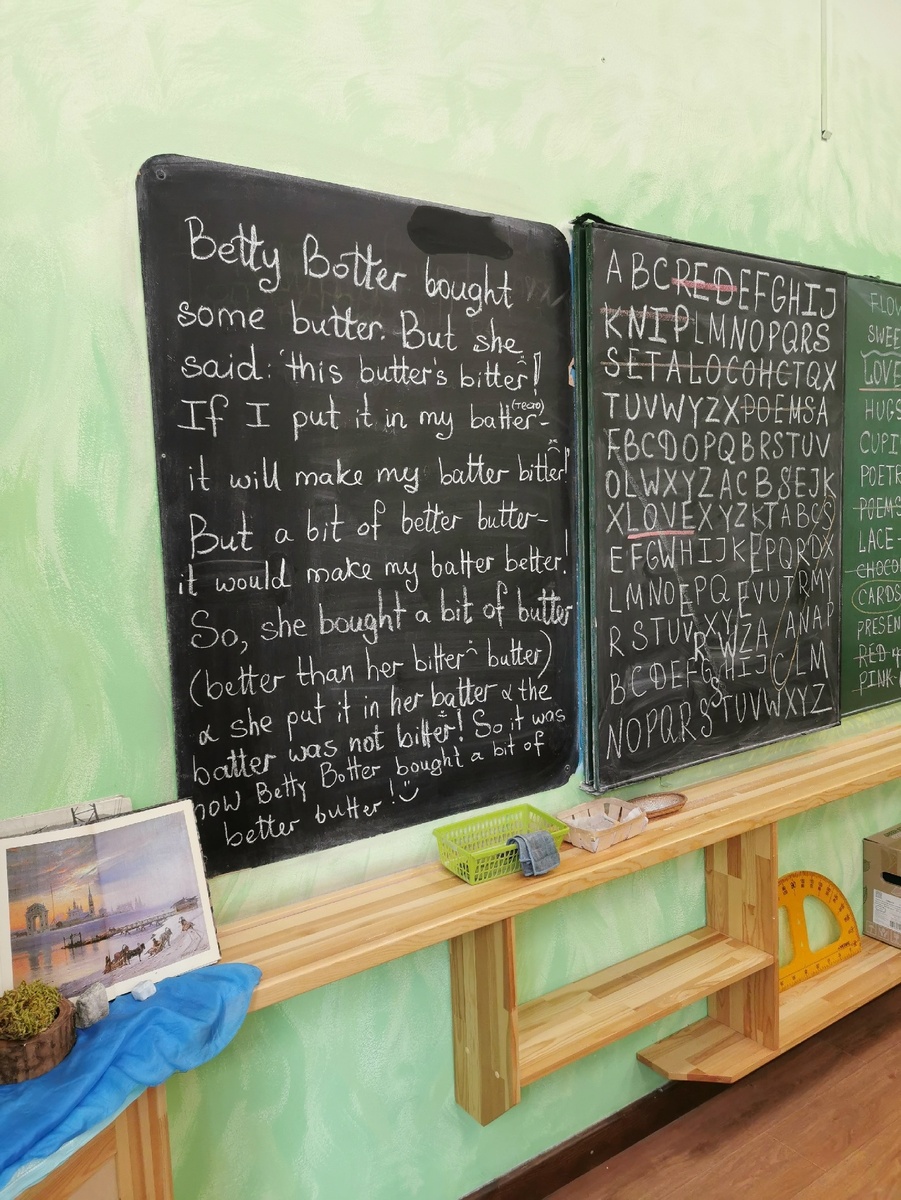 Betty Botter bought
some butter. But she
said: "this butter's bitter!
If I put it in my batter (тесто) -
it will make my batter bitter!
But a bit of better butter-
it would make my batter better!
So, she bought a bit of butter
(better than her bitter butter)
& she put it in her batter & the
batter was not bitter! So it was
how Betty Botter bought a bit of
better butter!
ABCREDEFGHIJ
KNIPLMNOPQRS
SETALOCOHCTQX
TUVWYZXPOEMSA
FBCDOPQBRSTUV
OLWXYZACBSEJK
XLOVEXYZKTABCS
EFGWHIJKEPQRDX
LMNOEPQEVUTRMY
RSTUVXYRWZAANAP
BCDEFGSHIJCLM
NOPQRSTUVWXYZ
LOVE
HUGS
POEMS
LACE-
CARDS